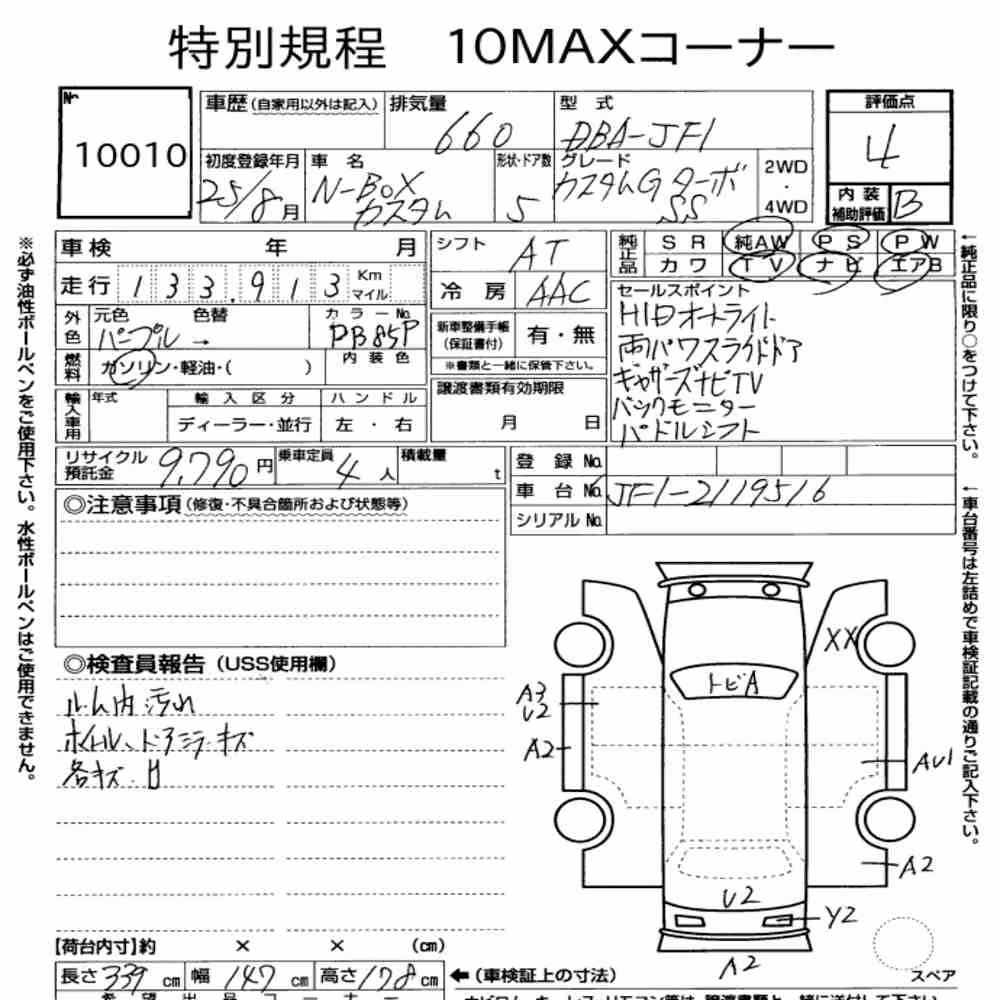 特別規程　10MAXコーナー
№
10010
車歴（自家用以外は記入）
排気量
660
型式
DBA-JF1
評価点
4
初度登録年月
25/8月
車名
N-BOX
カスタム
形状・ドア数
5
グレード
カスタムG ターボ
SS
2WD
・
4WD
内装
補助評価
B
車検　年　月
走行 133.913 Km
マイル
外色
元色　色替
パープル →
カラーNo.
PB85P
燃料
ガソリン・軽油・(　)
内装色
輸入車用
年式
輸入区分
ハンドル
ディーラー・並行
左・右
シフト
AT
冷房
AAC
新車整備手帳
(保証書付)
有・無
※書類と一緒に保管下さい。
譲渡書類有効期限
月　日
純正品
SR 純AW PS PW
カワ TV ナビ エアB
セールスポイント
HIDオートライト
両パワスライドドア
ギャザーズナビTV
バックモニター
パドルシフト
リサイクル
預託金
9,790円
乗車定員
4人
積載量
t
登録No.
車台No. JF1-2119516
シリアルNo.
◎注意事項（修復・不具合箇所および状態等）
◎検査員報告（USS使用欄）
ルーム内汚れ
ホイール、ドアミラーキズ
各キズ.凹
トビA
XX
A3
U2
A2
AU1
A2
U2
Y2
A2
スペア
【荷台内寸】約　×　×　(cm)
長さ 339 cm
幅 147 cm
高さ 178 cm
←（車検証上の寸法）
※必ず油性ボールペンをご使用下さい。水性ボールペンはご使用できません。
←純正品に限り○をつけて下さい。
←車台番号は左詰めで車検証記載の通りご記入下さい。